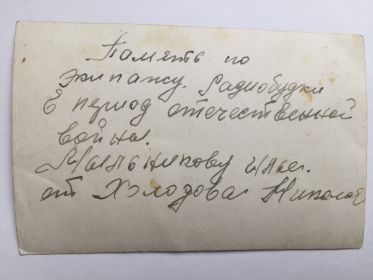 Память по
экипажу. Радиобудки
в период отечественной
войны.
Мыльникову
от Холодова Николая